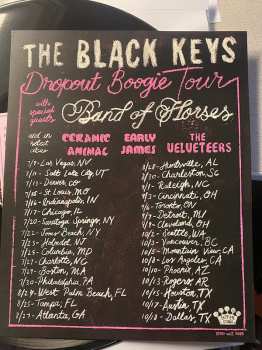 THE BLACK KEYS
Dropout Boogie Tour
with
special
guests
Band of Horses
and in
select
cities
CERAMIC
ANIMAL
EARLY
JAMES
THE
VELVETEERS
7/9 - Las Vegas, NV
Salt Lake City, UT
Denver, CO
St Louis, MO
Indianapolis, IN
Chicago, IL
Saratoga Springs, NY
Jones Beach, NY
Holmdel, NJ
Columbia, MD
Charlotte, NC
Boston, MA
Philadelphia, PA
West Palm Beach, FL
Tampa, FL
Atlanta, GA
Huntsville, AL
Charleston, SC
Raleigh, NC
Cincinnati, OH
Toronto, ON
Detroit, MI
Cleveland, OH
10/2 - Seattle, WA
10/3 - Vancouver, BC
Mountain View, CA
Los Angeles, CA
Phoenix, AZ
Rogers, AR
Houston, TX
Austin, TX
Dallas, TX